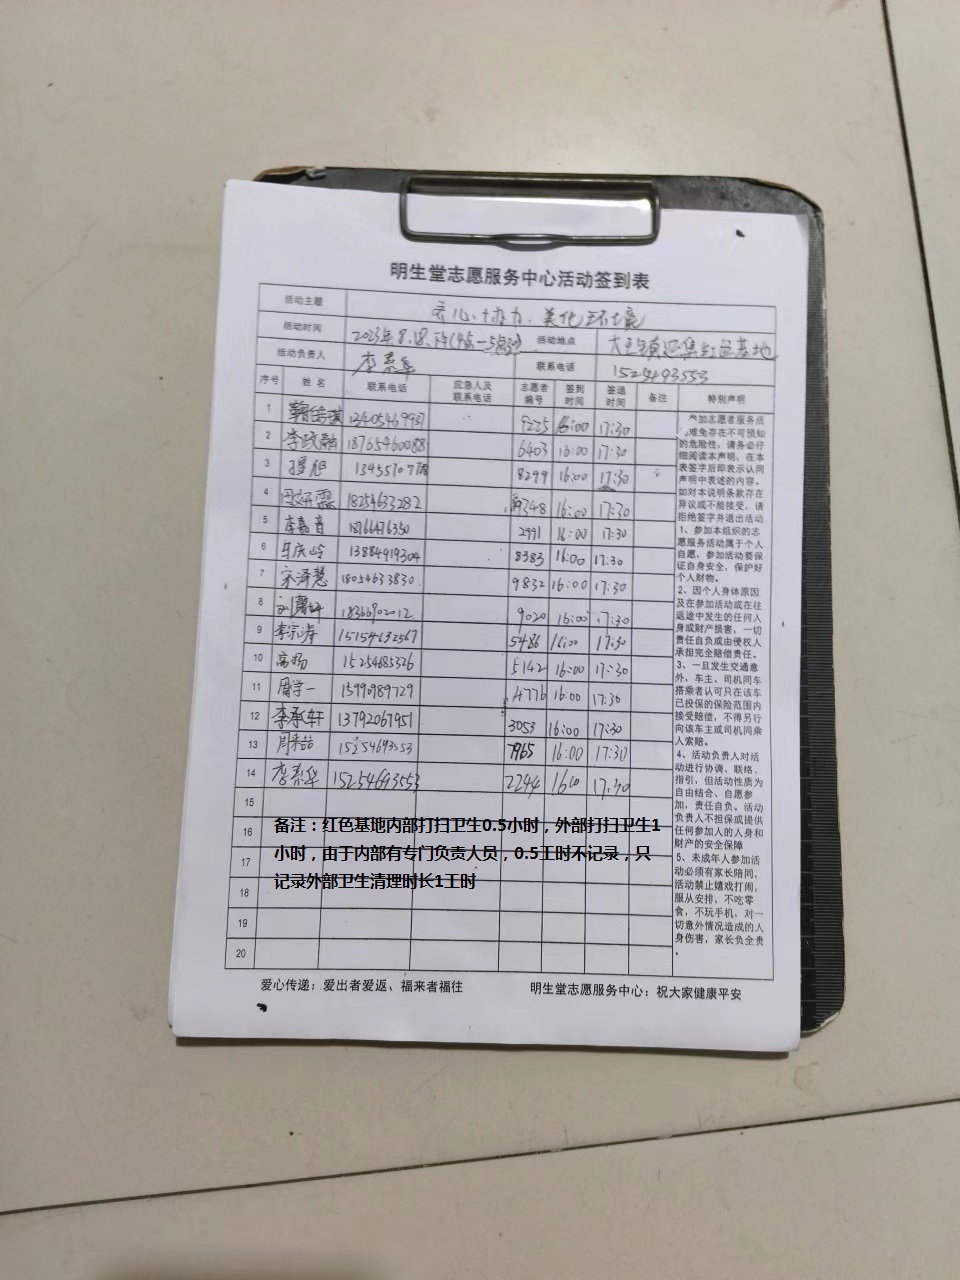 明生堂志愿服务中心活动签到表
活动主题 齐心协力、美化环境
活动时间 2023年8.18.下午(4点—5点30) 活动地点 基地
活动负责人 联系电话
序号 姓名 联系电话 应急人及联系电话 志愿者编号 签到时间 签退时间 备注 特别声明
1 13405469937 9225 16:00 17:30
2 18765460088 6403 16:00 17:30
3 8299 16:00 17:30
4 18254633282 16:00 17:30
5 18766476350 2991 16:00 17:30
6 13884919304 8383 16:00 17:30
7 宋泽慧 18054633830 9832 16:00 17:30
8 18366902012 9020 16:00 17:30
9 李宗涛 15154632567 5486 16:00 17:30
10 高杨 15254685326 5142 16:00 17:30
11 周学一 13990989729 4776 16:00 17:30
12 李承轩 13792067951 3053 16:00 17:30
13 15254693553 7965 16:00 17:30
14 15254693553 2244 17:30
15
16
17
18
19
20
参加志愿者服务活
难免存在不可预知
的危险性，请务必仔
细阅读本声明，在本
表签字后即表示认同
声明中表述的内容。
如对本说明条款存在
异议或不能接受，请
拒绝签字并退出活动
1、参加本组织的志
愿服务活动属于个人
自愿，参加活动要保
证自身安全，保护好
个人财物。
2、因个人身体原因
及在参加活动或在往
返途中发生的任何人
身或财产损害，一切
责任自负或由侵权人
承担完全赔偿责任。
3、一旦发生交通意
外，车主、司机同车
搭乘者认可只在该车
已投保的保险范围内
接受赔偿，不得另行
向该车主或司机同乘
人索赔。
4、活动负责人对活
动进行协调、联络、
指引，但活动性质为
自由结合、自愿参
加，责任自负。活动
负责人不担保或提供
任何参加人的人身和
财产的安全保障
5、未成年人参加活
动必须有家长陪同，
活动禁止嬉戏打闹，
服从安排，不吃零
食，不玩手机，对一
切意外情况造成的人
身伤害，家长负全责
备注：红色基地内部打扫卫生0.5小时，外部打扫卫生1
小时，由于内部有专门负责人员，0.5工时不记录，只
记录外部卫生清理时长1工时
爱心传递：爱出者爱返、福来者福往 明生堂志愿服务中心：祝大家健康平安